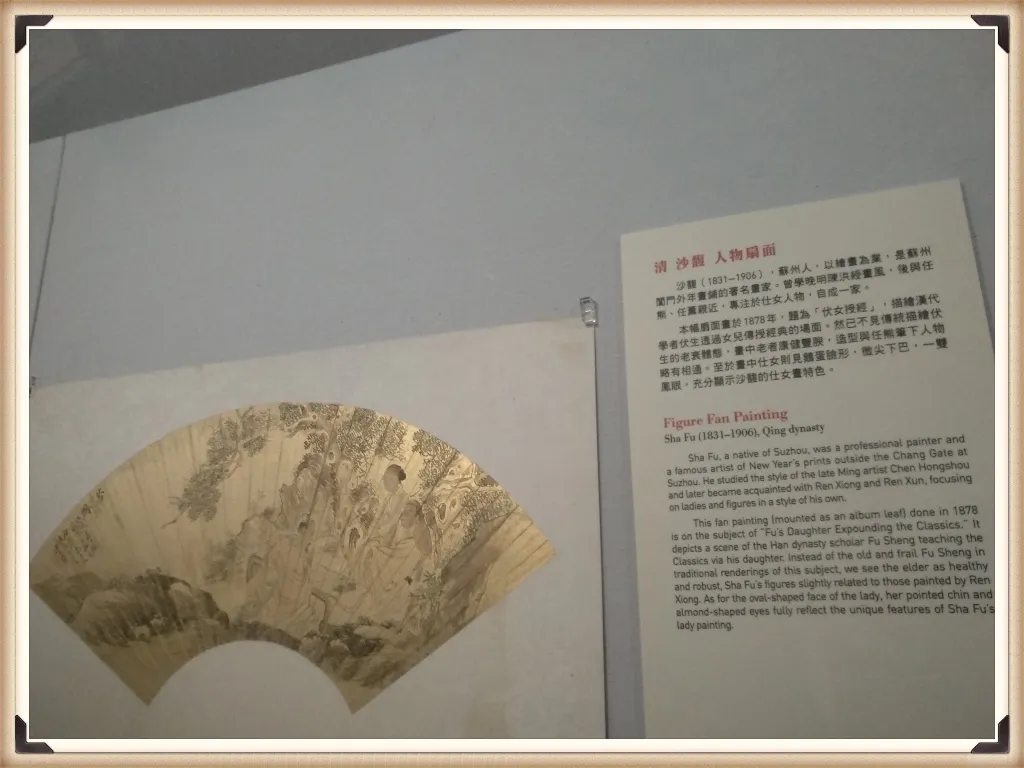 清 沙馥 人物扇面
沙馥（1831–1906），蘇州人，以繪畫為業，是蘇州
閶門外年畫鋪的著名畫家。曾學晚明陳洪綬畫風，後與任
熊、任薰親近，專注於仕女人物，自成一家。
本幅扇面畫於1878年，題為「伏女授經」，描繪漢代
學者伏生透過女兒傳授經典的場面。然已不見傳統描繪伏
生的老衰體態，畫中老者康健豐腴，造型與任熊筆下人物
略有相通。至於畫中仕女則見鵝蛋臉形，微尖下巴，一雙
鳳眼，充分顯示沙馥的仕女畫特色。
Figure Fan Painting
Sha Fu (1831–1906), Qing dynasty
Sha Fu, a native of Suzhou, was a professional painter and
a famous artist of New Year's prints outside the Chang Gate at
Suzhou. He studied the style of the late Ming artist Chen Hongshou
and later became acquainted with Ren Xiong and Ren Xun, focusing
on ladies and figures in a style of his own.
This fan painting (mounted as an album leaf) done in 1878
is on the subject of "Fu's Daughter Expounding the Classics." It
depicts a scene of the Han dynasty scholar Fu Sheng teaching the
Classics via his daughter. Instead of the old and frail Fu Sheng in
traditional renderings of this subject, we see the elder as healthy
and robust, Sha Fu's figures slightly related to those painted by Ren
Xiong. As for the oval-shaped face of the lady, her pointed chin and
almond-shaped eyes fully reflect the unique features of Sha Fu's
lady painting.